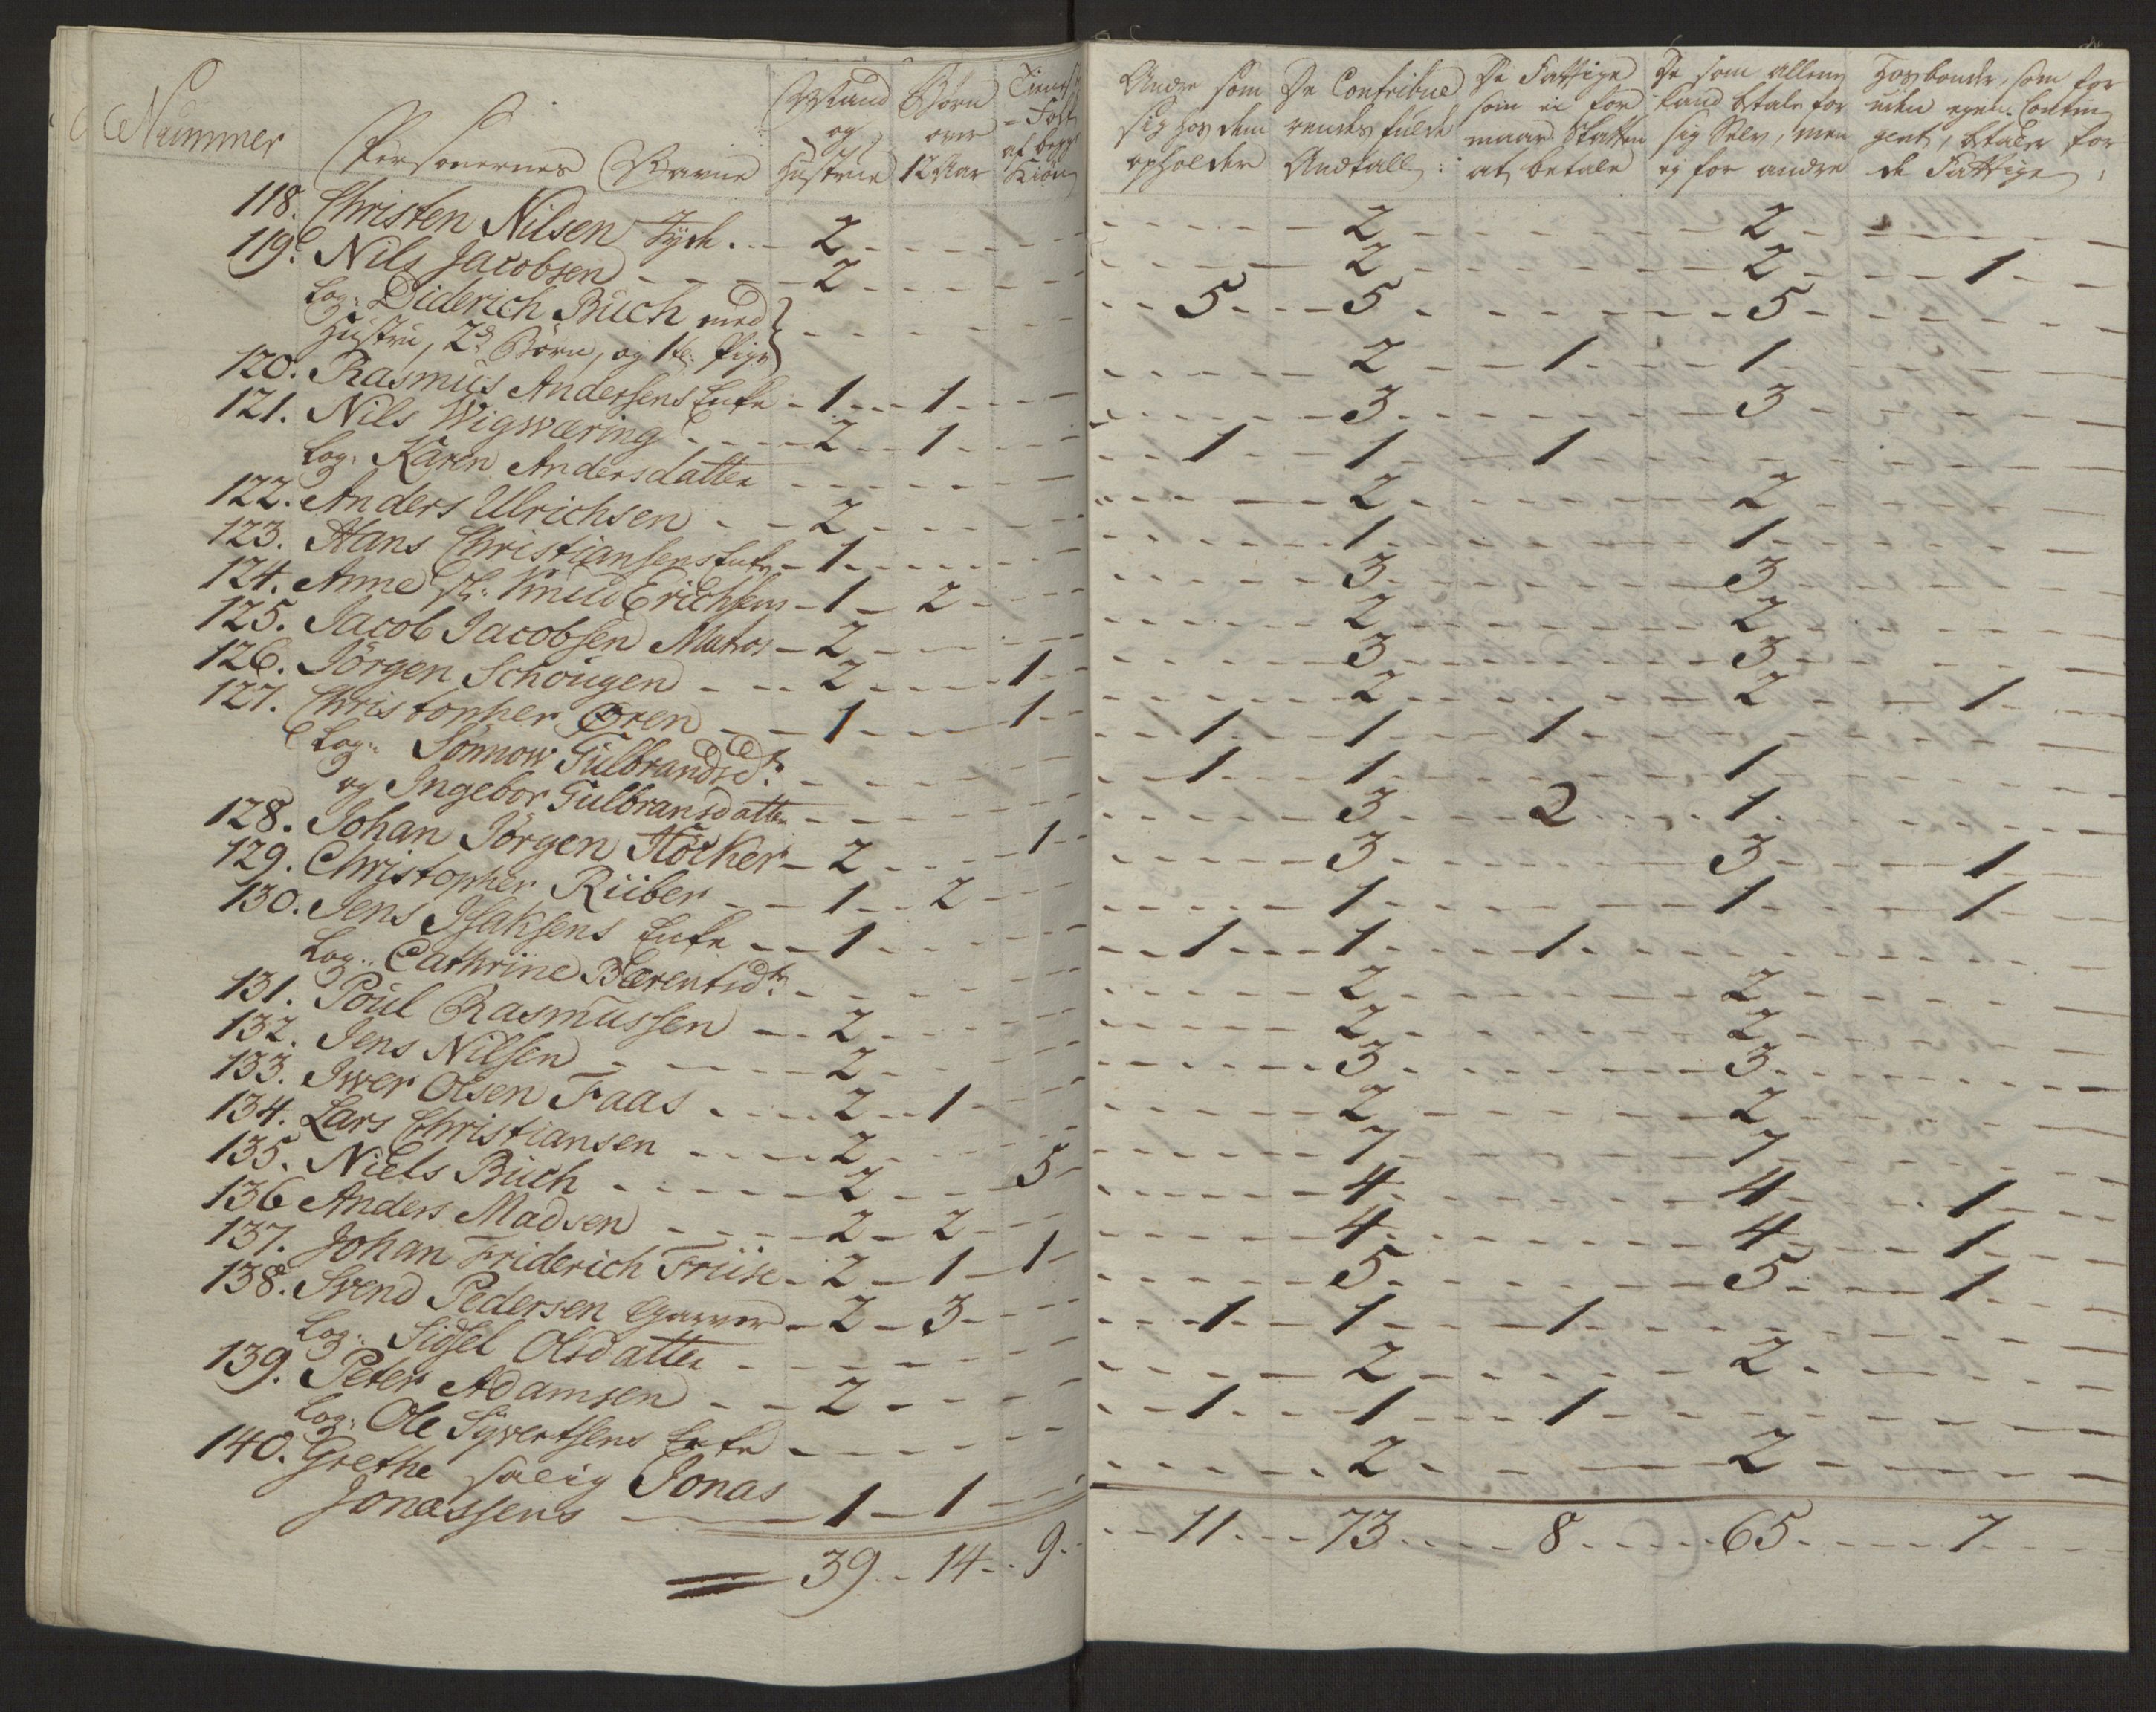 Nummer
Personernes Navne
Mand og Hustrue
Börn over 12 Aar
Tieneste-Folk af begge Kiön
Andre som sig hos dem opholder
De Contribuerendes fulde Andtall:
De Fattige som ei formaar Skatten at betale
De som allene kand betale for sig Selv, men ej for andre
Hosbonder, som foruden egen Contingent, betaler for de Fattige,
118. Christen Nilsen Tydk. 2 2 2
119. Nils Jacobsen 2 2 2 1
Log: Diderich Büch med
Hustru, 2de Börn, og 1 te. Pige 5 5 5
120. Rasmus Andersens Enke 1 1 2 1 1
121. Nils Wigwæring 2 1 3 3
Log: Karen Andersdatter 1 1 1
122. Anders Ulrichsen 2 2 2
123. Hans Christiansens Enke 1 1 1
124. Anne Sl: Knud Erichsens 1 2 3 3
125. Jacob Jacobsen Matros 2 2 2
126. Jörgen Schougen 2 1 3 3
127. Christopher Øren 1 1 2 2 1
Log: Sönnow Gulbrandsdr. 1 1 1
og Ingebor Gulbransdatter 1 1 1
128. Johan Jörgen Höcker 2 1 3 2 1
129. Christopher Rüber 1 2 3 3 1
130. Jens Isaksens Enke 1 1 1 1
Log: Cathrine Bærentsdr. 1 1 1
131. Poul Rasmussen 2 2 2
132. Jens Nilsen 2 2 2
133. Iwer Olsen Faas 2 1 3 3
134. Lars Christiansen 2 2 2
135. Niels Büch 2 5 7 7
136 Anders Madsen 2 2 4 4 1
137. Johan Friderich Friise 2 1 1 4 4 1
138. Svend Pedersen Garver 2 3 5 5 1
Log: Sidsel Olsdatter 1 1 1
139. Peter Adamsen 2 2 2
Log: Ole Syvertsens Enke 1 1 1
140. Grethe salig Jonas
Jonassens 1 1 2 2
39 14 9 11 73 8 65 7